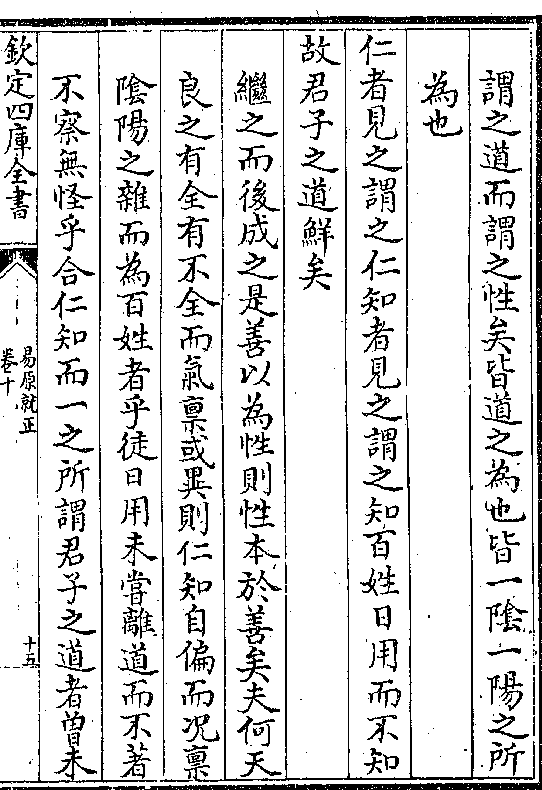 謂之道而謂之性矣皆道之為也皆一隂一陽之所
為也
仁者見之謂之仁知者見之謂之知百姓日用而不知
故君子之道鮮矣
繼之而後成之是善以為性則性本於善矣夫何天
良之有全有不全而氣禀或異則仁知自偏而况禀
隂陽之雜而為百姓者乎徒日用未嘗離道而不著
不察無怪乎合仁知而一之所謂君子之道者曽未
欽定四庫全書
易原就正
卷十
十五